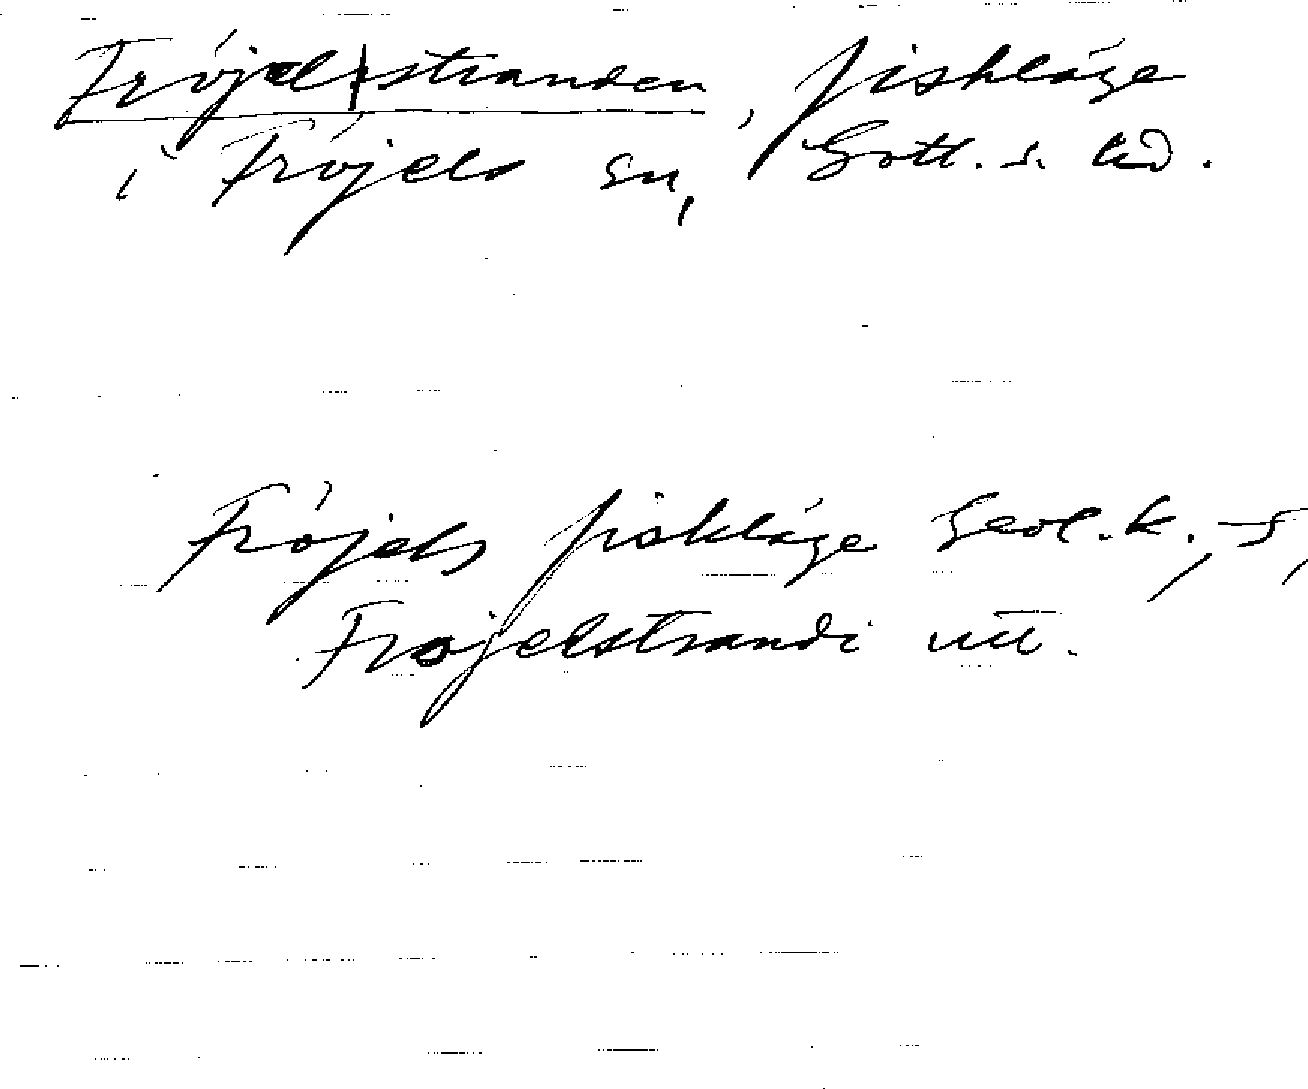 Fröjel|stranden, fiskläge
i Fröjels sn, Gotl. s. hd.
Fröjels fiskläge Geol.k., -s,
Fröjelstrandi utt.